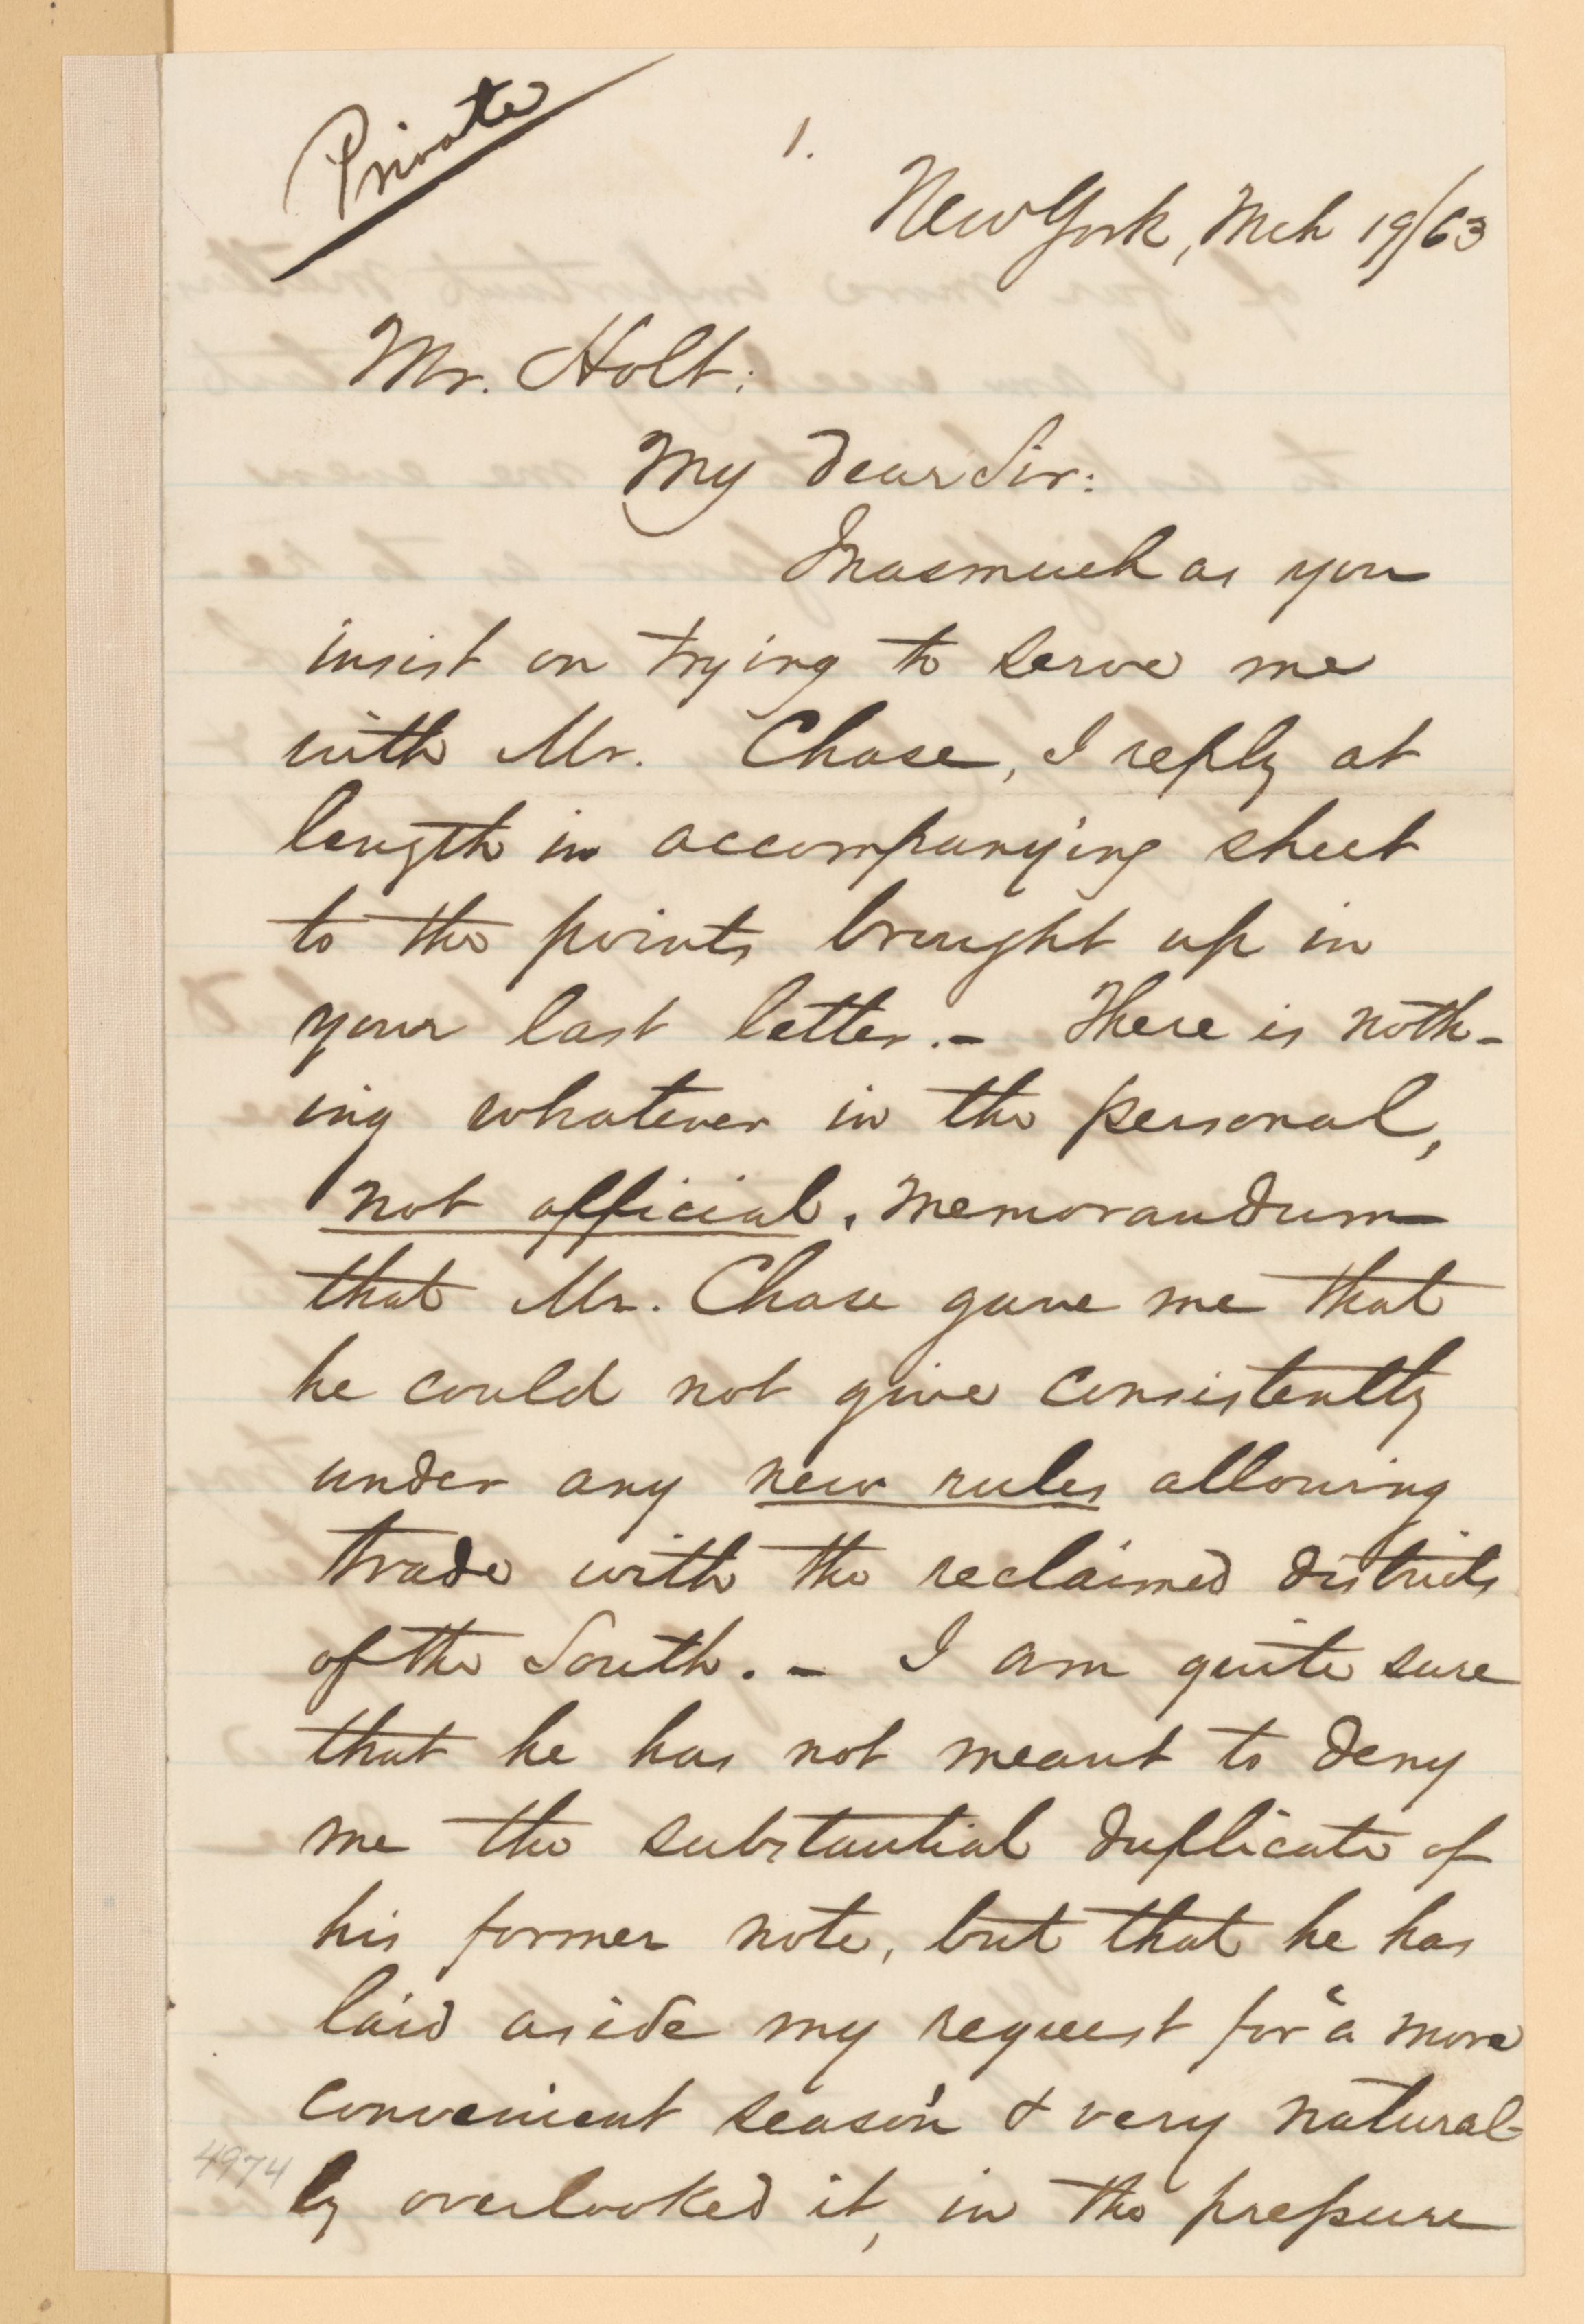 Private
1.
New York, Mch 19/63
Mr. Holt:
My dear Sir:
Inasmuch as you
insist on trying to serve me
with Mr. Chase, I reply at
length in accompanying sheet
to the points brought up in
your last letter. - There is noth-
ing whatever in the personal,
not official, memorandum
that Mr. Chase gave me that
he could not give consistently
under any new rules allowing
trade with the reclaimed districts
of the South. - I am quite sure
that he has not meant to deny
me the substantial duplicate of
his former note, but that he has
laid aside my request for a more
convenient season & very natural-
ly overlooked it, in the pressure
4974